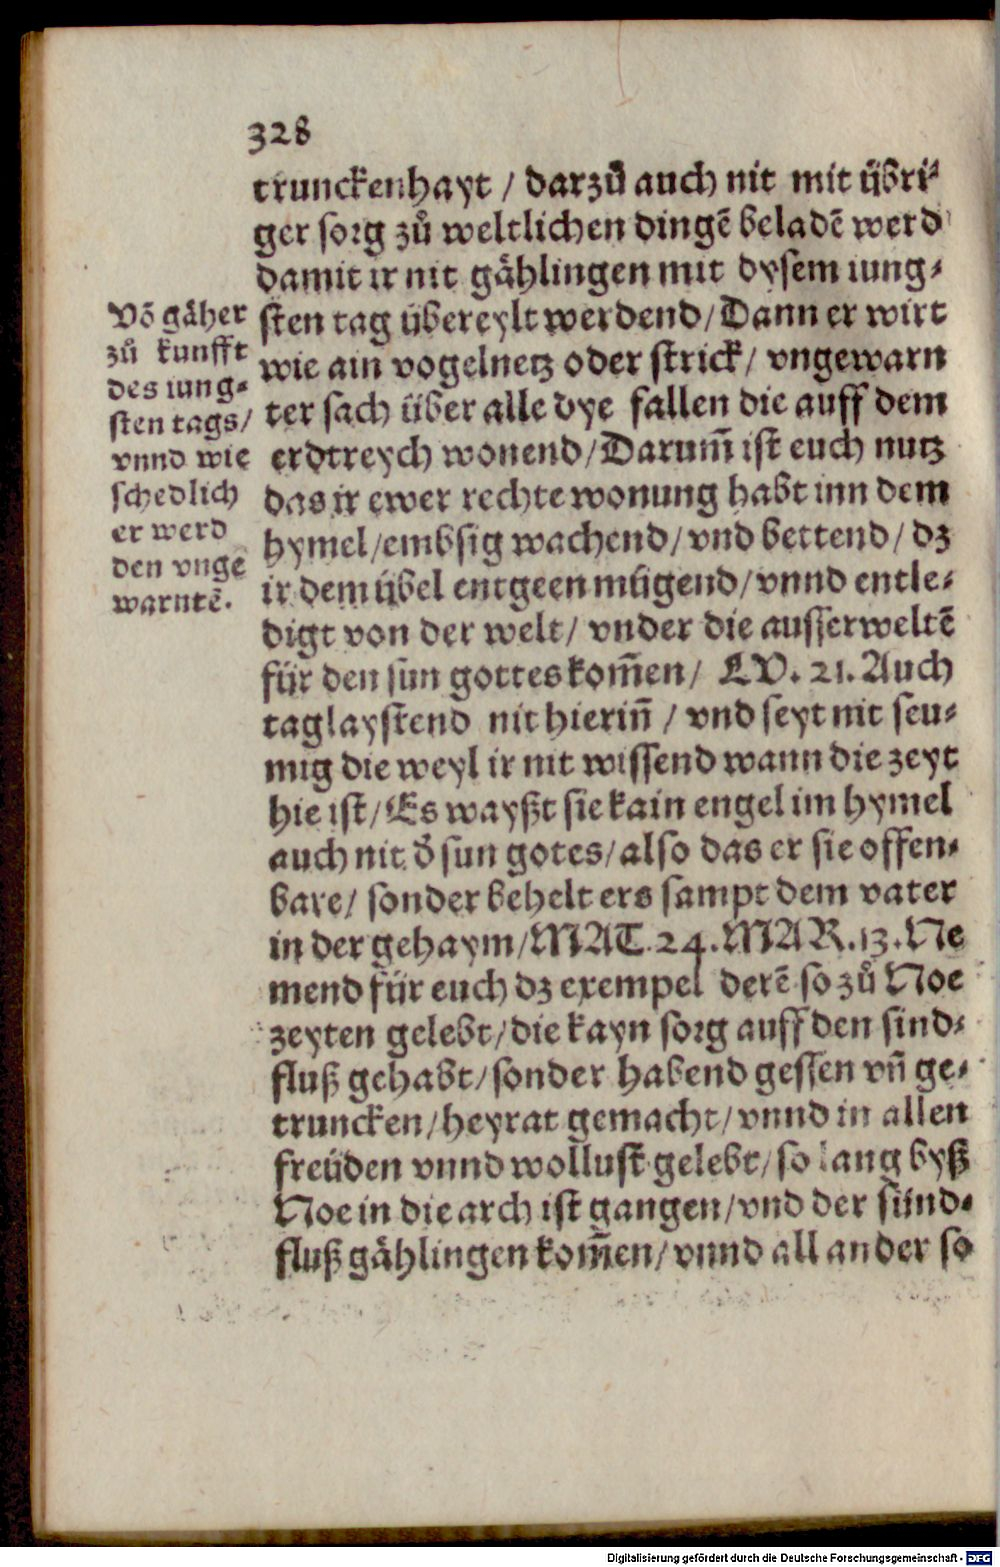 328
trunckenhayt / darzů auch nit mit übri⸗
ger sorg zů weltlichen dingẽ beladẽ werd
damit ir nit gählingen mit dysem iung⸗
sten tag übereylt werdend/Dann er wirt
wie ain vogelnetz oder strick/ vngewarn
ter sach über alle dye fallen die auff dem
erdtreych wonend/Darum̃ ist euch nutz
das ir ewer rechte wonung habt inn dem
hymel/embsig wachend/vnd bettend/ dz
ir dem übel entgeen mügend/vnnd entle⸗
digt von der welt/ vnder die ausserweltẽ
für den sun gottes kom̃en/ LV. 21. Auch
taglaystend nit hierin̄ / vnd seyt nit seu⸗
mig die weyl ir nit wissend wann die zeyt
hie ist/Es wayßt sie kain engel im hymel
auch nit d̕ sun gotes/also das er sie offen⸗
bare/ sonder behelt ers sampt dem vater
in der gehaym/MAT. 24. MAR. 13. Ne
mend für euch dz exempel derẽ so zů Noe
zeyten gelebt/die kayn sorg auff den sind⸗
fluß gehabt/sonder habend gessen vñ ge⸗
truncken/heyrat gemacht/vnnd in allen
freüden vnnd wollust gelebt/so lang byß
Noe in die arch ist gangen/vnd der sünd⸗
fluß gählingen kom̃en/vnnd all ander so
Võ gäher
zů kunfft
des iung⸗
sten tags/
vnnd wie
schedlich
er werd
den vnge
warntẽ.
Digitalisierung gefördert durch die Deutsche Forschungsgemeinschaft - DFG